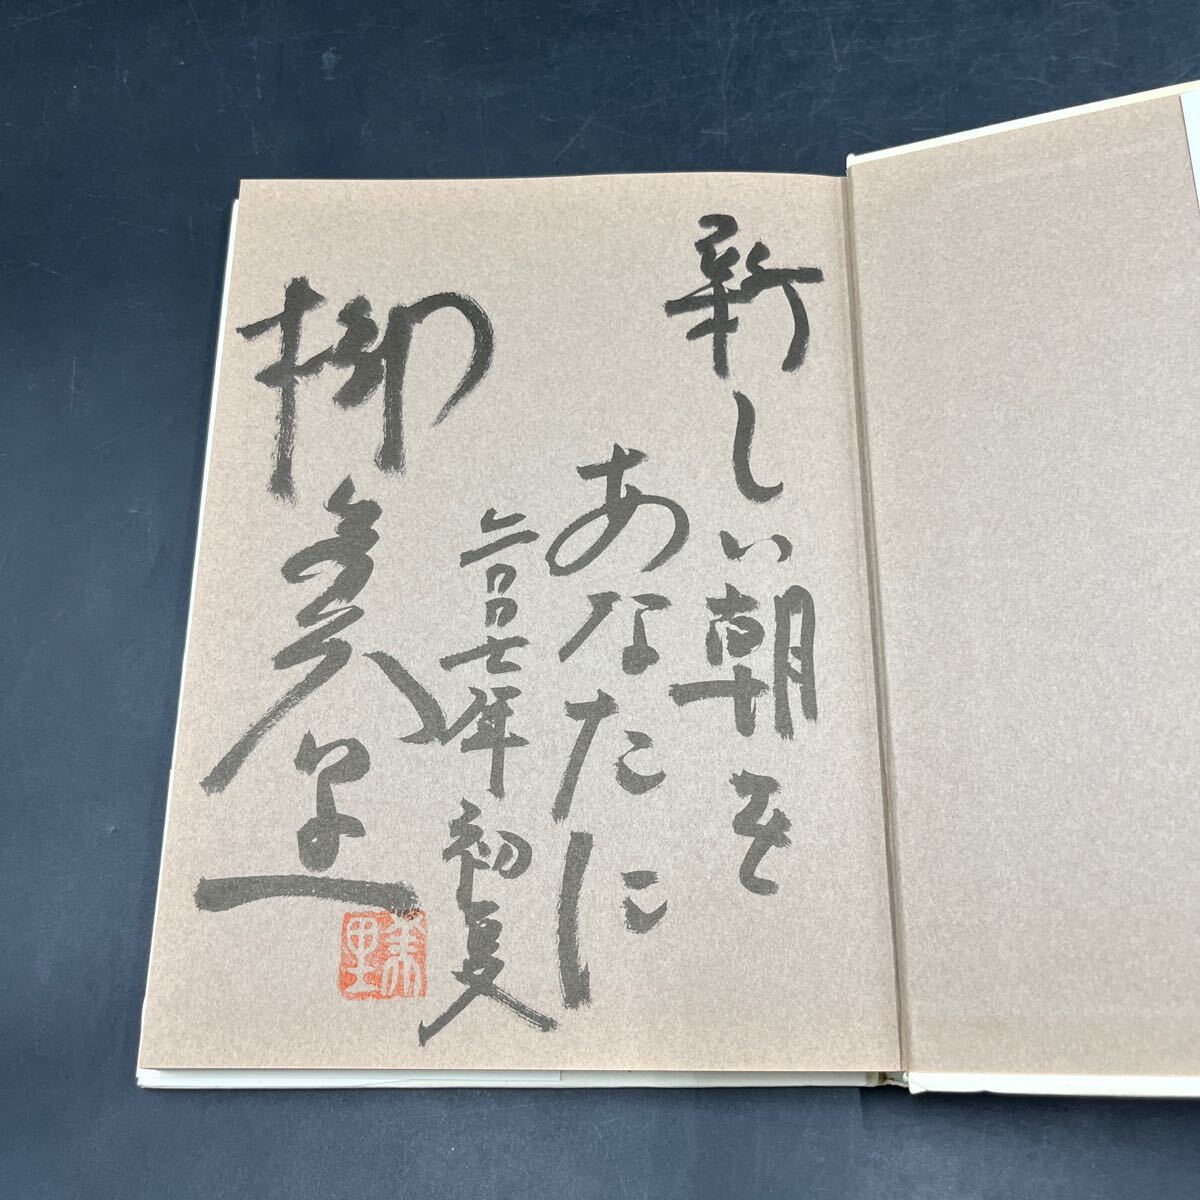 新しい朝を
あなたに
二〇〇七年初夏
柳美里
美里